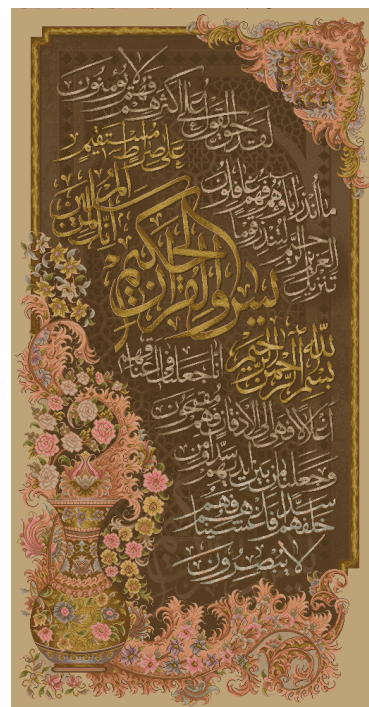 بسم الله الرحمن الرحيم
يس والقرآن الحكيم
انك لمن المرسلين
على صراط مستقيم
تنزيل
العزيز الرحيم لتنذر قوما
ما أنذر آباؤهم فهم غافلون
لقد حق القول على أكثرهم فهم لا يؤمنون
انا جعلنا في اعناقهم
اغلالا فهي الى الاذقان فهم مقمحون
وجعلنا من بين ايديهم سدا ومن
خلفهم سدا فاغشيناهم فهم
لا يبصرون